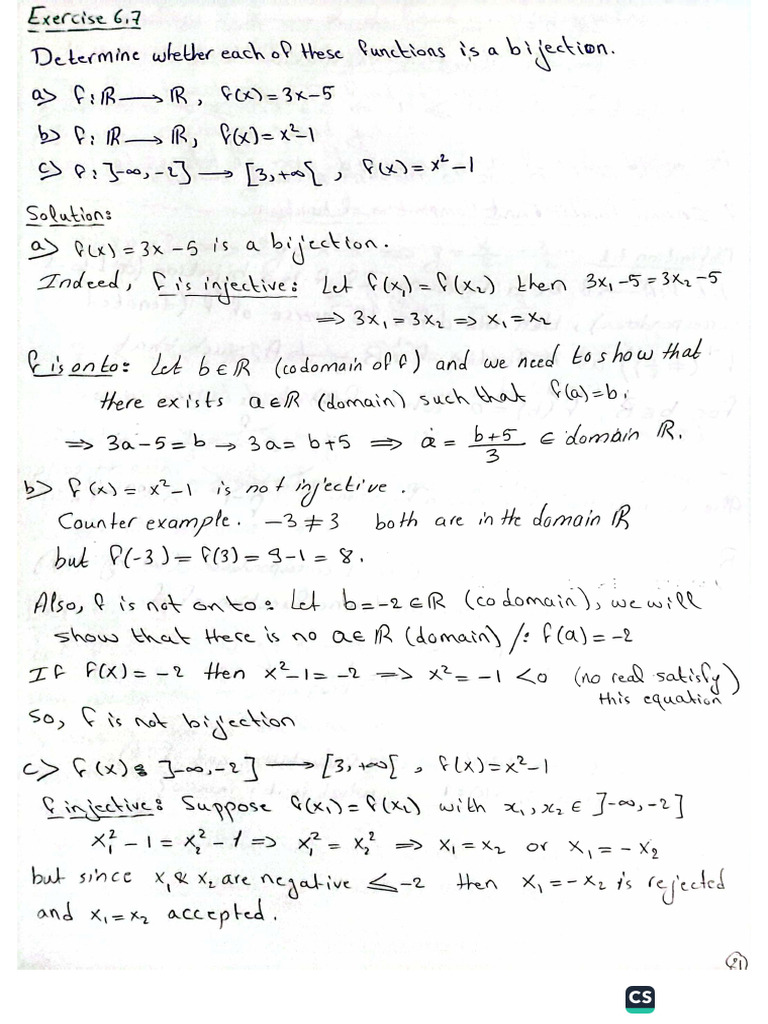 Exercise 6.7
Determine whether each of these functions is a bijection.
a) f: ℝ → ℝ, f(x)=3x-5
b) f: ℝ → ℝ, f(x)=x²-1
c) f: ]-∞,-2] → [3,+∞[, f(x)=x²-1
Solution:
a) f(x)=3x-5 is a bijection.
Indeed, f is injective: Let f(x₁)=f(x₂) then 3x₁-5=3x₂-5
⇒ 3x₁=3x₂ ⇒ x₁=x₂
f is onto: Let b∈ℝ (codomain of f) and we need to show that
there exists a∈ℝ (domain) such that f(a)=b.
⇒ 3a-5=b → 3a=b+5 ⇒ a=(b+5)/3 ∈ domain ℝ.
b) f(x)=x²-1 is not injective.
Counter example. -3≠3 both are in the domain ℝ
but f(-3)=f(3)=9-1=8.
Also, f is not onto: Let b=-2∈ℝ (codomain), we will
show that there is no a∈ℝ (domain) /: f(a)=-2
If f(x)=-2 then x²-1=-2 ⇒ x²=-1<0 (no real satisfy
this equation)
So, f is not bijection
c) f(x): ]-∞,-2] → [3,+∞[, f(x)=x²-1
f injective: Suppose f(x₁)=f(x₂) with x₁,x₂∈]-∞,-2]
x₁²-1=x₂²-1 ⇒ x₁²=x₂² ⇒ x₁=x₂ or x₁=-x₂
but since x₁ & x₂ are negative ≤-2 then x₁=-x₂ is rejected
and x₁=x₂ accepted.
21
CS